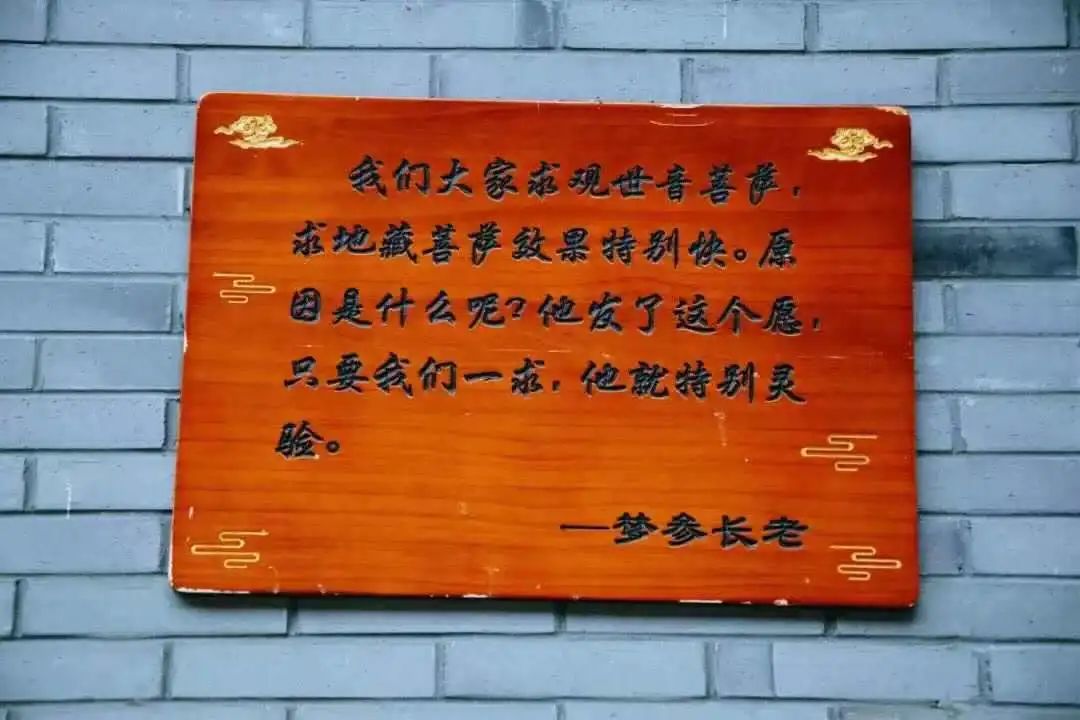 我们大家求观世音菩萨，
求地藏菩萨效果特别快。原
因是什么呢?他发了这个愿，
只要我们一求，他就特别灵
验。
—梦参长老